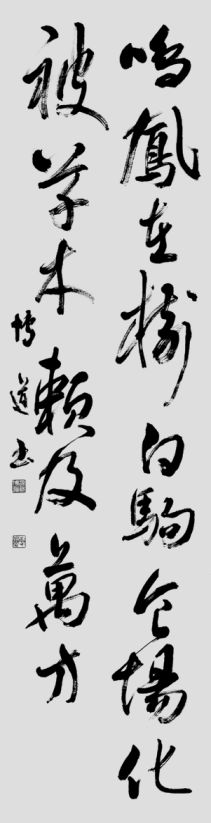 鳴鳳在樹白駒食場化
被草木賴及萬方
博道書